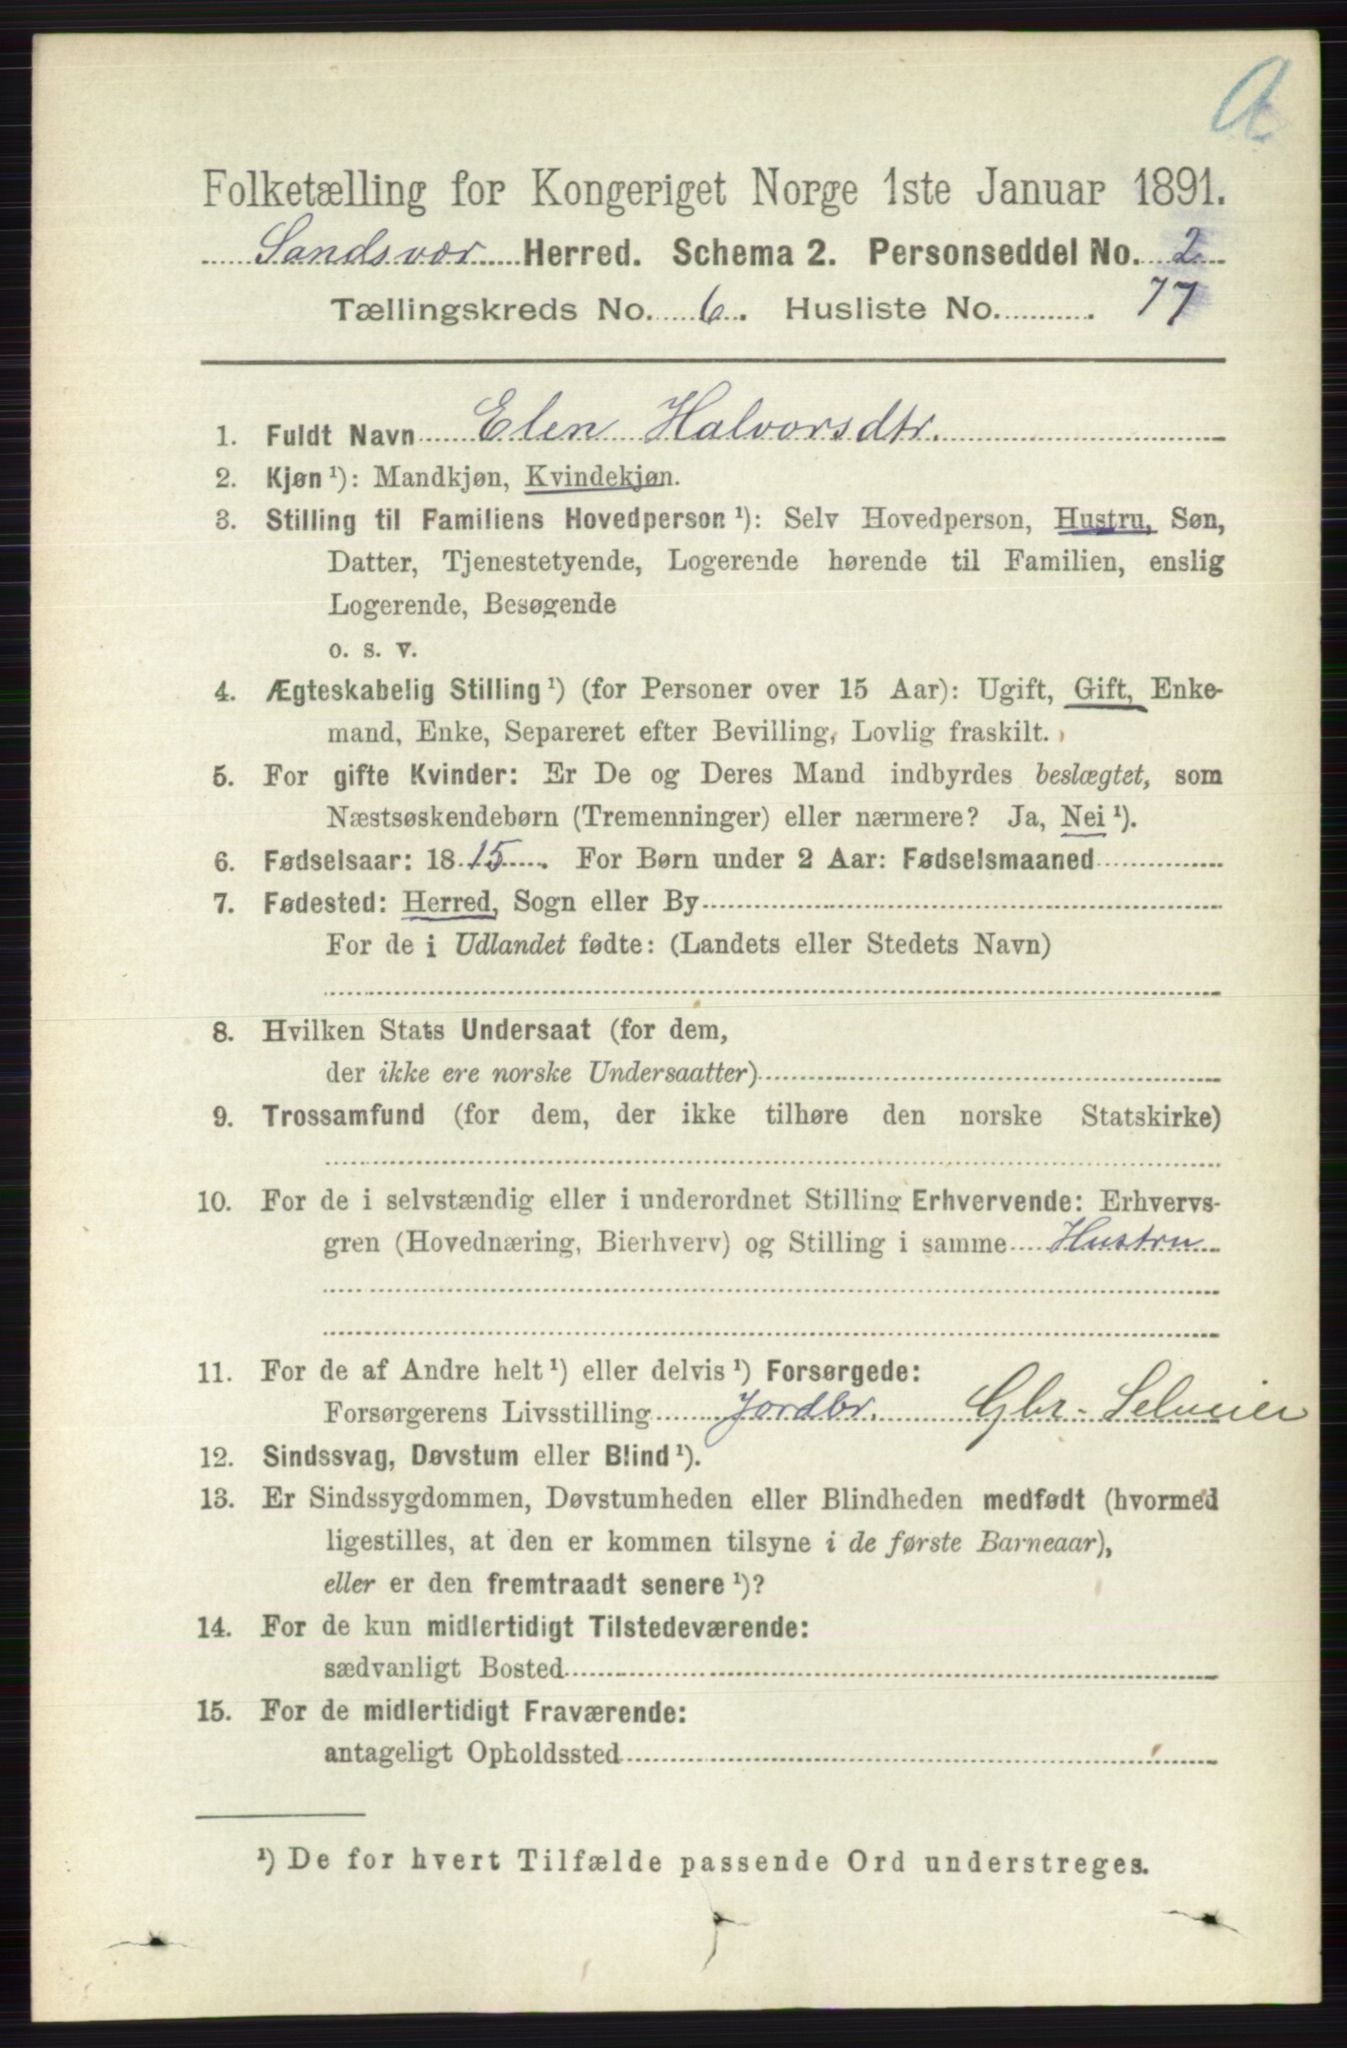 A
Folketælling for Kongeriget Norge 1ste Januar 1891.
Sandsvær Herred. Schema 2. Personseddel No. 2
Tællingskreds No. 6. Husliste No. 77
1. Fuldt Navn Elen Halvorsdtr.
2. Kjøn ¹): Mandkjøn, Kvindekjøn.
3. Stilling til Familiens Hovedperson ¹): Selv Hovedperson, Hustru, Søn,
Datter, Tjenestetyende, Logerende hørende til Familien, enslig
Logerende, Besøgende
o. s. v.
4. Ægteskabelig Stilling ¹) (for Personer over 15 Aar): Ugift, Gift, Enke-
mand, Enke, Separeret efter Bevilling, Lovlig fraskilt.
5. For gifte Kvinder: Er De og Deres Mand indbyrdes beslægtet, som
Næstsøskendebørn (Tremenninger) eller nærmere? Ja, Nei ¹).
6. Fødselsaar: 1815. For Børn under 2 Aar: Fødselsmaaned
7. Fødested: Herred, Sogn eller By
For de i Udlandet fødte: (Landets eller Stedets Navn)
8. Hvilken Stats Undersaat (for dem,
der ikke ere norske Undersaatter)
9. Trossamfund (for dem, der ikke tilhøre den norske Statskirke)
10. For de i selvstændig eller i underordnet Stilling Erhvervende: Erhvervs-
gren (Hovednæring, Bierhverv) og Stilling i samme Hustru
11. For de af Andre helt ¹) eller delvis ¹) Forsørgede:
Forsørgerens Livsstilling Jordbr. Gbr-Selveier
12. Sindssvag, Døvstum eller Blind ¹).
13. Er Sindssygdommen, Døvstumheden eller Blindheden medfødt (hvormed
ligestilles, at den er kommen tilsyne i de første Barneaar),
eller er den fremtraadt senere ¹)?
14. For de kun midlertidigt Tilstedeværende:
sædvanligt Bosted
15. For de midlertidigt Fraværende:
antageligt Opholdssted
¹) De for hvert Tilfælde passende Ord understreges.